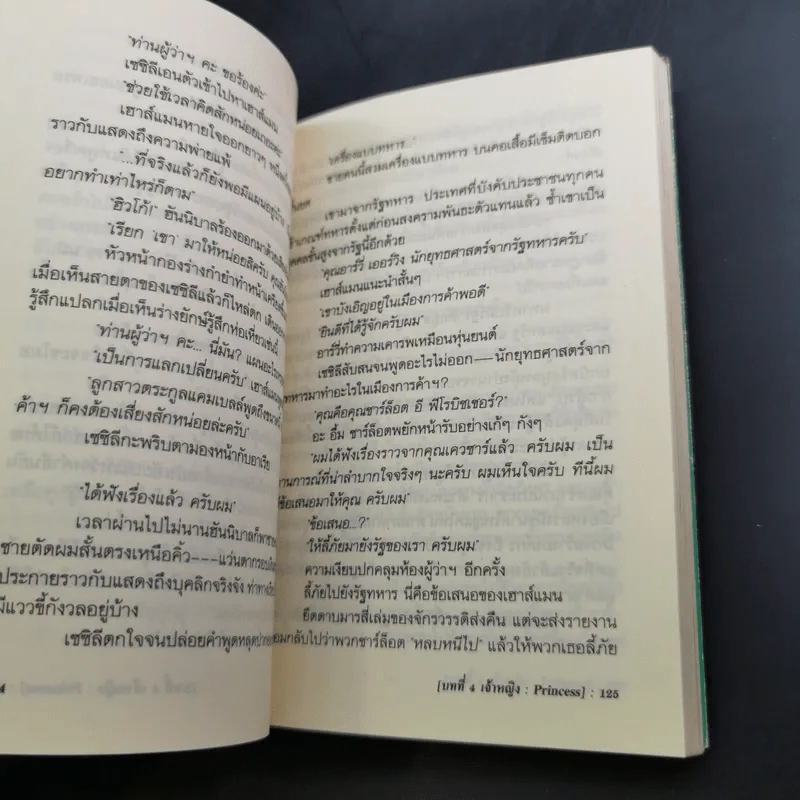 "ท่านผู้ว่าฯ คะ ขอร้องค่ะ"
เซซิลีเอนตัวเข้าไปหาเฮาส์แมน
"ช่วยใช้เวลาคิดสักหน่อยเถอะค่ะ"
เฮาส์แมนหายใจออกยาวๆ
ราวกับแสดงถึงความพ่ายแพ้
"...ที่จริงแล้วก็ยังพอมีแผนอยู่
อยากทำเท่าไหร่ก็ตาม"
"ฮิวโก้!" ฮันนิบาลร้องออกมา
"เรียก 'เขา' มาให้หน่อยสิครับ
หัวหน้ากองร่างกำยำทำหน้า
เมื่อเห็นสายตาของเซซิลีแล้วก็ไหล่ตก
รู้สึกแปลกเมื่อเห็นร่างยักษ์รู้สึกห่อเหี่ยวเช่นนี้
"ท่านผู้ว่าฯ คะ... นี่มัน?
"เป็นการแลกเปลี่ยนครับ"
"ลูกสาวตระกูลแคมเบลล์พูดถึง
ค้าฯ ก็คงต้องเสี่ยงสักหน่อยละครับ"
เซซิลีกะพริบตามองหน้ากับอาเรีย
"ได้ฟังเรื่องแล้ว ครับผม"
เวลาผ่านไปไม่นานฮันนิบาลก็พา
ชายตัดผมสั้นตรงเหนือคิ้ว---แว่นตากรอบ
ประกายราวกับแสดงถึงบุคลิกจริงจัง
มีแววขี้กังวลอยู่บ้าง
เซซิลีตกใจจนปล่อยคำพูดหลุด
4
"เครื่องแบบทหาร..."
ชายคนนี้สวมเครื่องแบบทหาร บนคอเสื้อมีเข็มติดบอก
เขามาจากรัฐทหาร ประเทศที่บังคับประชาชนทุกคน
เกณฑ์ทหารตั้งแต่ก่อนสงครามพันธะตัวแทนแล้ว ซ้ำเขาเป็น
คลชั้นสูงจากรัฐนี้อีกด้วย
"คุณอาร์วี่ เออร์วิง นักยุทธศาสตร์จากรัฐทหารครับ"
เฮาส์แมนแนะนำสั้นๆ
"เขาบังเอิญอยู่ในเมืองการค้าพอดี"
"ยินดีที่ได้รู้จักครับผม"
อาร์วี่ทำความเคารพเหมือนหุ่นยนต์
เซซิลีสับสนจนพูดอะไรไม่ออก---นักยุทธศาสตร์จาก
ทหารมาทำอะไรในเมืองการค้าฯ?
"คุณคือคุณชาร์ล็อต อี ฟิโรบิชเชอร์?"
อะ อื้ม ชาร์ล็อตพยักหน้ารับอย่างเก้ๆ กังๆ
"ผมได้ฟังเรื่องราวจากคุณเควซาร์แล้ว ครับผม เป็น
านการณ์ที่น่าลำบากใจจริงๆ นะครับ ผมเห็นใจครับ ทีนี้ผม
ข้อเสนอมาให้คุณ ครับผม"
"ข้อเสนอ...?"
"ให้ลี้ภัยมายังรัฐของเรา ครับผม"
ความเงียบปกคลุมห้องผู้ว่าฯ อีกครั้ง
ลี้ภัยไปยังรัฐทหาร นี่คือข้อเสนอของเฮาส์แมน
ยึดดาบมารสี่เล่มของจักรวรรดิส่งคืน แต่จะส่งรายงาน
อมกลับไปว่าพวกชาร์ล็อต "หลบหนีไป" แล้วให้พวกเธอลี้ภัย
[บทที่ 4 เจ้าหญิง : Princess] : 125